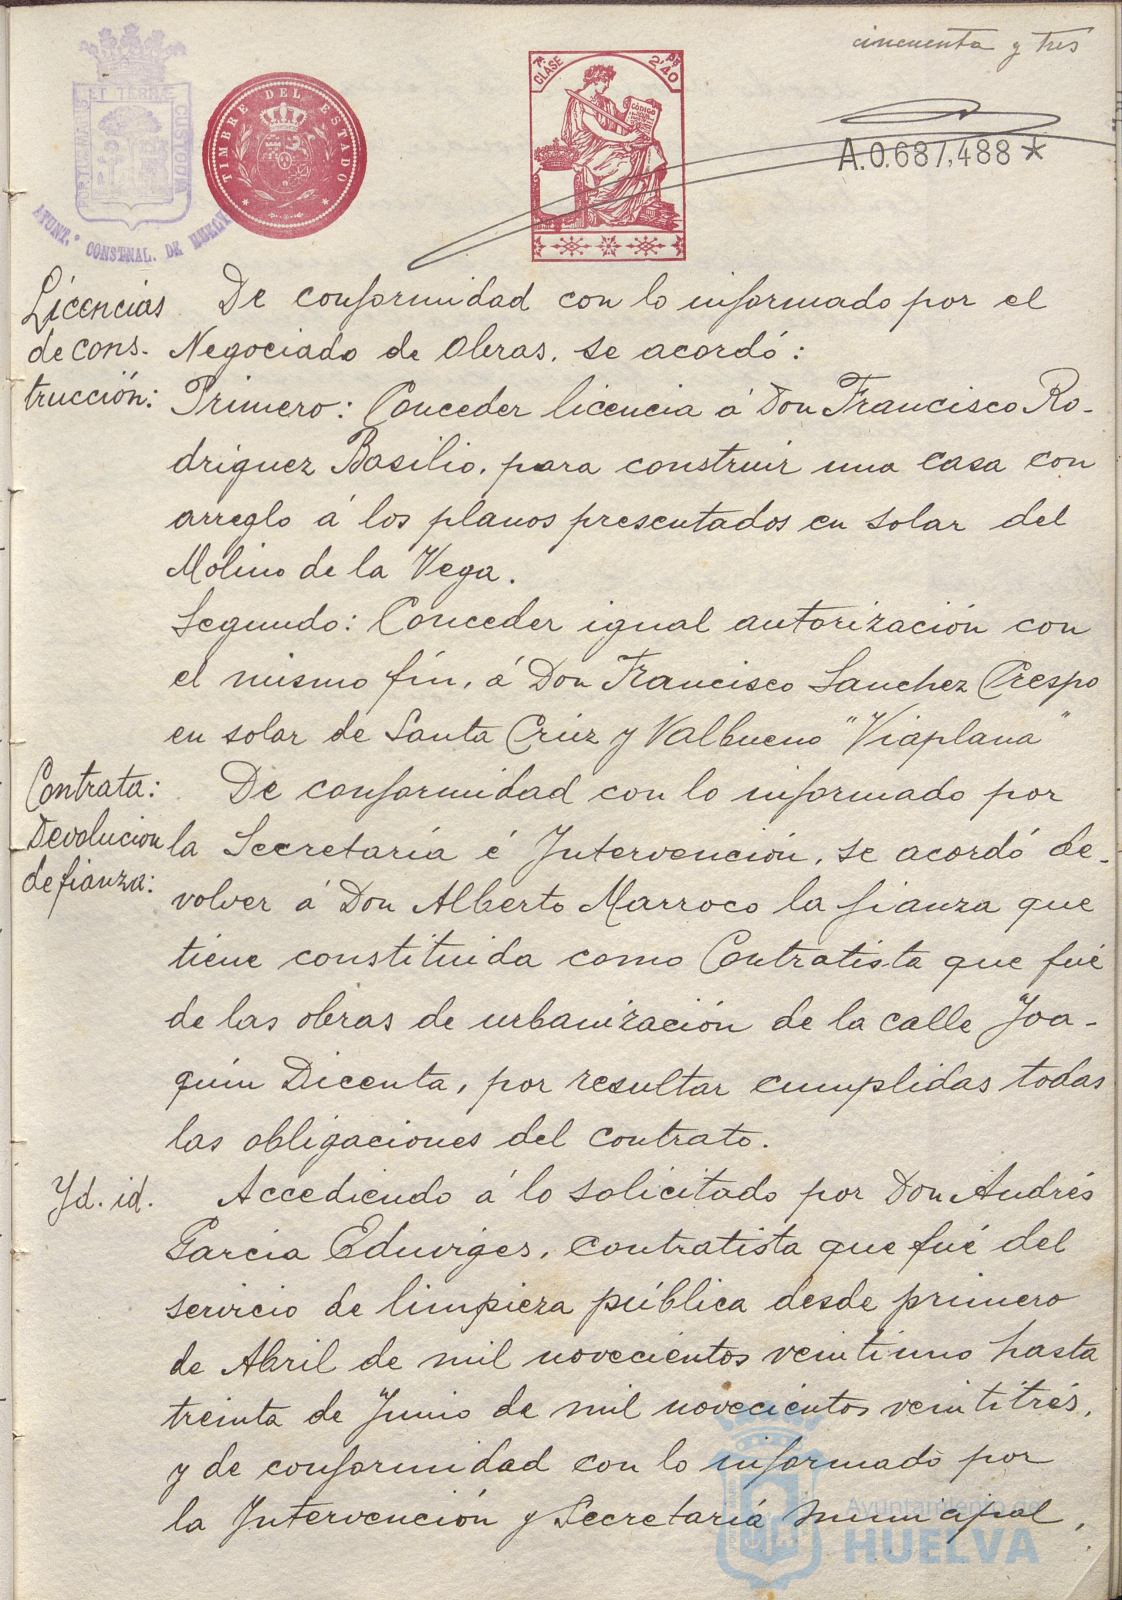 cincuenta y tres
PORTUS MARIS ET TERRAE CUSTODIA
AYUNT.º CONSTNAL. DE HUELVA
TIMBRE DEL ESTADO
7ª CLASE
Pts 2'40
CODIGO
A.0.687,488*
Licencias
de cons-
trucción:
De conformidad con lo informado por el
Negociado de Obras, se acordó:
Primero: Conceder licencia á Don Francisco Ro-
driguez Basilio, para construir una casa con
arreglo á los planos presentados en solar del
Molino de la Vega.
Segundo: Conceder igual autorización con
el mismo fín, á Don Francisco Sanchez Crespo
en solar de Santa Cruz y Valbueno "Viaplana"
Contrata:
Devolución
de fianza:
De conformidad con lo informado por
la Secretaría é Intervención, se acordó de-
volver á Don Alberto Marroco la fianza que
tiene constituida como Contratista que fué
de las obras de urbanización de la calle Joa-
quin Dicenta, por resultar cumplidas todas
las obligaciones del contrato.
Yd. id.
Accediendo á lo solicitado por Don Andrés
Garcia Eduvigés, contratista que fué del
servicio de limpieza pública desde primero
de Abril de mil novecientos veintiuno hasta
treinta de Junio de mil novecientos veintitrés,
y de conformidad con lo informado por
la Intervención y Secretaría municipal,
Ayuntamiento de
HUELVA